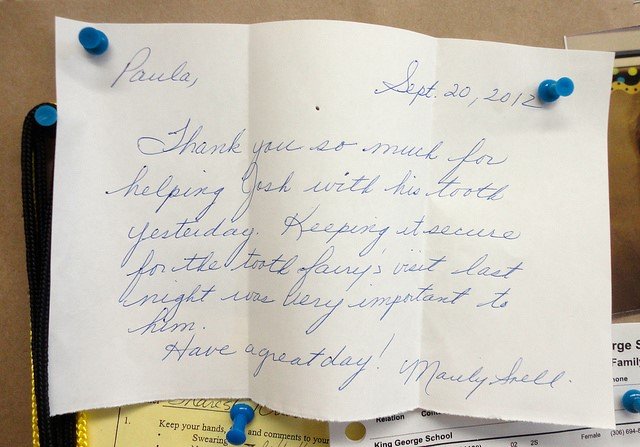 Paula,
Sept. 20, 2012
Thank you so much for
helping Josh with his tooth
yesterday. Keeping it secure
for the tooth fairy's visit last
night was very important to
him.
Have a great day!
1.
Keep your hands,
and comments to your
Swearing
Relation
King George School
02
25
Female
(306)
rge S
Family
hone